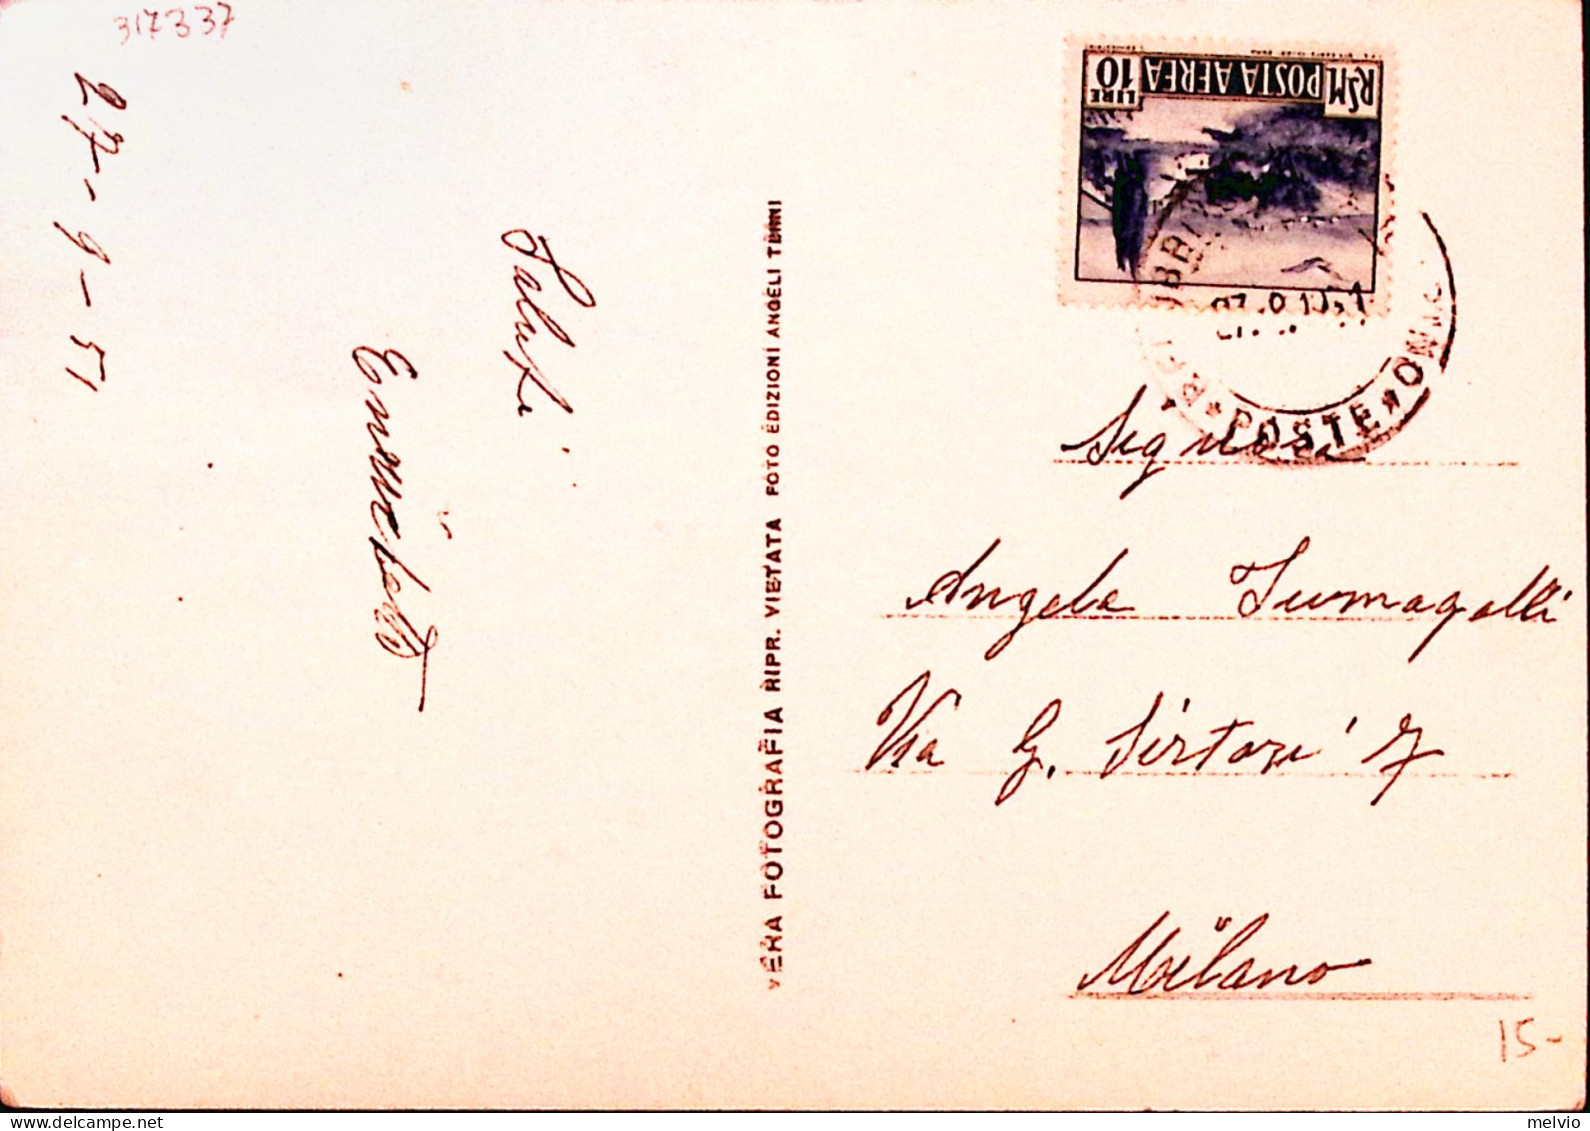 317337
27-9-51
Saluti
VERA FOTOGRAFIA RIPR. VIETATA FOTO EDIZIONI ANGELI TERNI
RSM POSTA AEREA LIRE 10
POSTE
Angela Fumagalli
Via G. Sirtori 7
Milano
15-
melvio